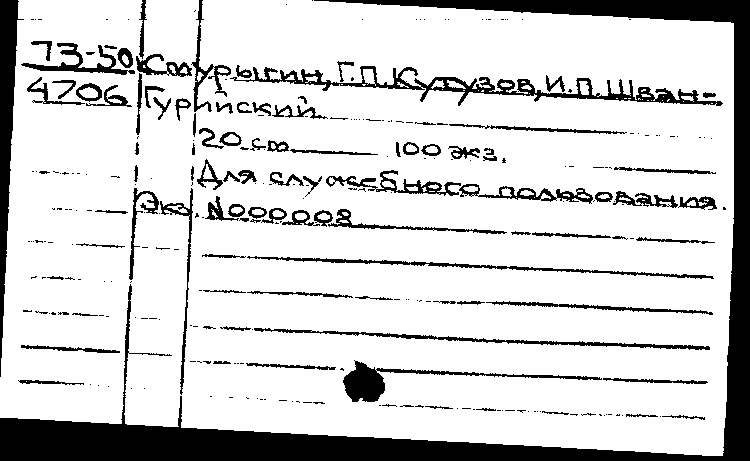 73-50 Смурыгин, Г.П. Кутузов, И.П. Шван-
4706 Гурийский
20 см 100 экз.
Для служебного пользования.
Экз. N000008